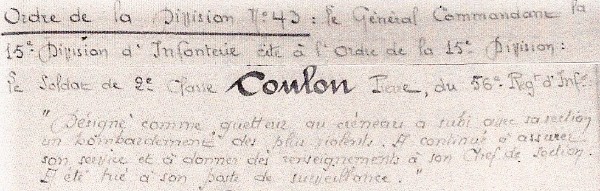 Ordre de la Division N° 43 : Le Général Commandant la
15e Division d'Infanterie cite à l'Ordre de la 15e Division :
Le Soldat de 2e Classe Coulon, du 56e Régt d'Inf.
"Désigné comme guetteur au créneau a subi avec sa section
un bombardement des plus violents. A continué à assurer
son service et à donner des renseignements à son Chef de Section.
A été tué à son poste de surveillance."